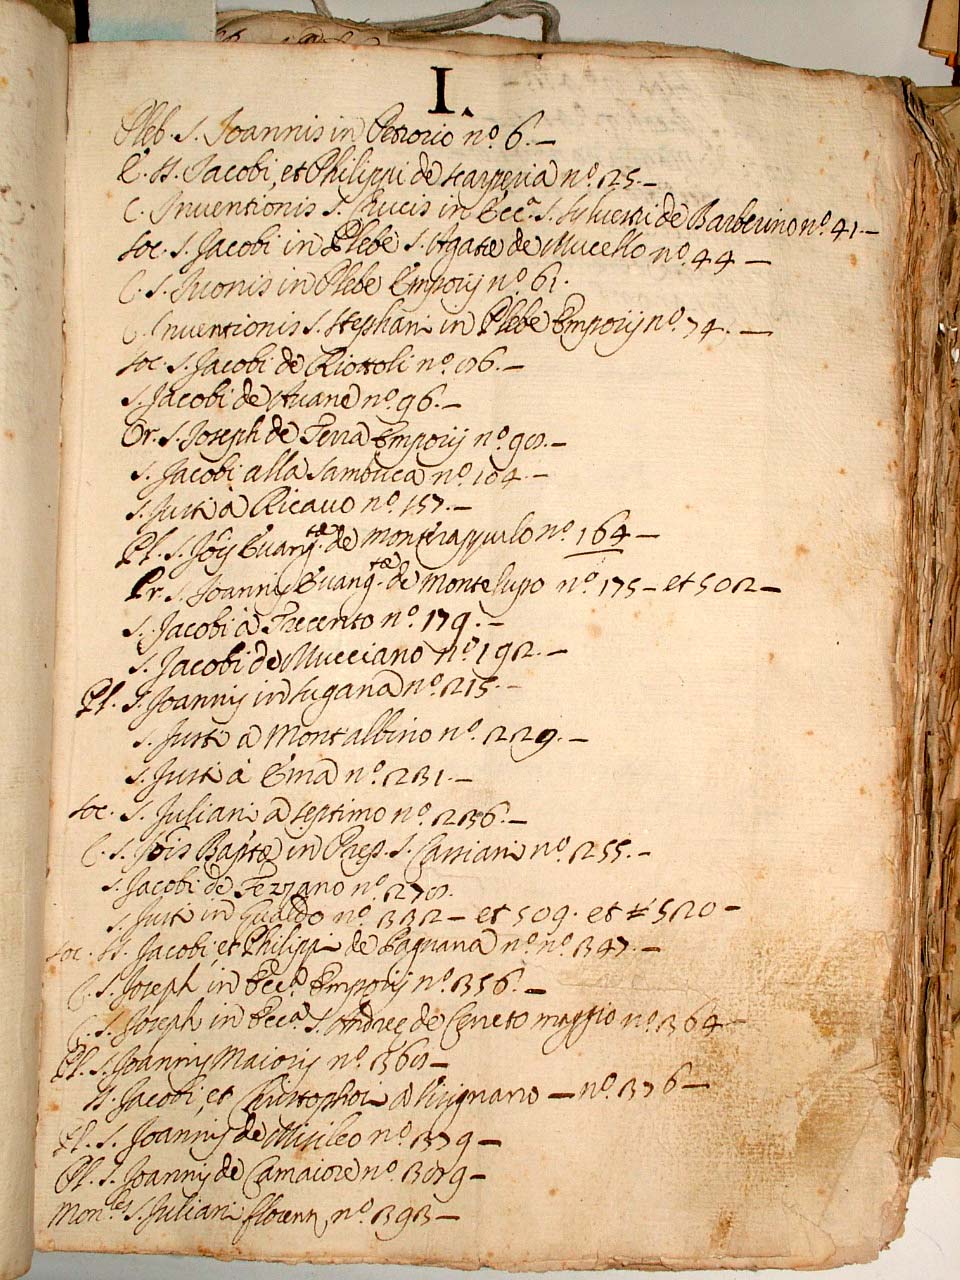 I.
Pleb. S. Joannis in Petrorio nº. 6. –
E. SS. Jacobi, et Philippi de Scarperia nº. 25. –
C. Inventionis S. Crucis in Ecc.ª S. Silvestri de Barberino nº. 41 –
Soc. S. Jacobi in Plebe S. Agatæ de Mucello nº. 44 –
C. S. Iuonis in Plebe Emporij nº 61.
C. Inventionis S. Stephani in Plebe Emporij nº. 74. –
Soc. S. Jacobi de nº. 86. –
S. Jacobi de Auane nº. 96. –
Or. S. Joseph de Terra Emporij nº. 98. –
S. Jacobi alla Sambuca nº. 104 –
S. Justi à Ricauo nº. 157. –
Pl. S. Jōis Euangtæ. de nº. 164 –
Pr. S. Joannis Euangtæ. de Monte Lupo nº. 175 – et 502 –
S. Jacobi à Frecento nº. 179. –
S. Jacobi de Mucciano nº. 192. –
Pl. S. Joannis in Sugana nº. 215. –
S. Justi à Montalbino nº. 229. –
S. Justi à Ema nº. 231. –
Soc. S. Juliani a Septimo nº. 236. –
C. S. Jōis Baptæ in S. Cassiani nº. 255. –
S. Jacobi de nº 278.
S. Justi in Gualdo nº. 332 – et 509. et 520 –
Soc. SS. Jacobi et Philippi de Pagnana nº. nº. 347. –
C. S. Joseph in Ecc.ª Emporij nº. 356. –
C. S. Joseph in Ecc.ª S. Andreę de Cerreto maggio nº. 364 –
Pl. S. Joannis Maioris nº. 368 –
SS. Jacobi, et Christophori a – nº. 376 –
Pl. S. Joannis de Misileo nº. 379 –
Pl. S. Joannis de Camaiore nº. 389 –
Mon.les S. Juliani floren. nº. 393 –